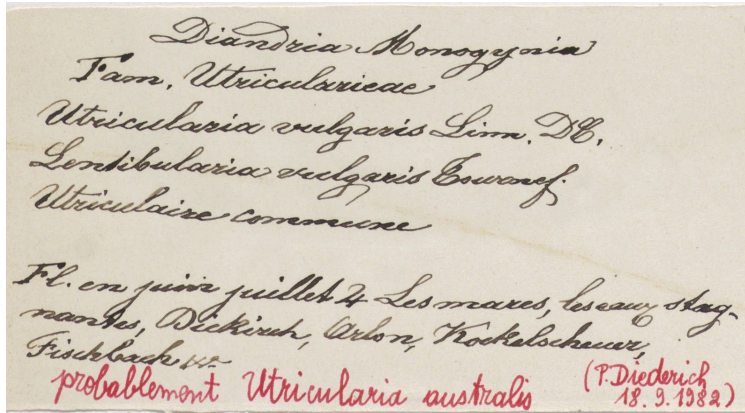 Diandria Monogynia
Fam. Utricularieae
Utricularia vulgaris Linn. DC.
Lentibularia vulgaris Tournef.
Utriculaire commune
Fl. en juin juillet ♃ Les mares, les eaux stag-
nantes, Diekirch, Arlon, Kockelscheuer,
Fischbach
probablement Utricularia australis
(P. Diederich
18.9.1982)